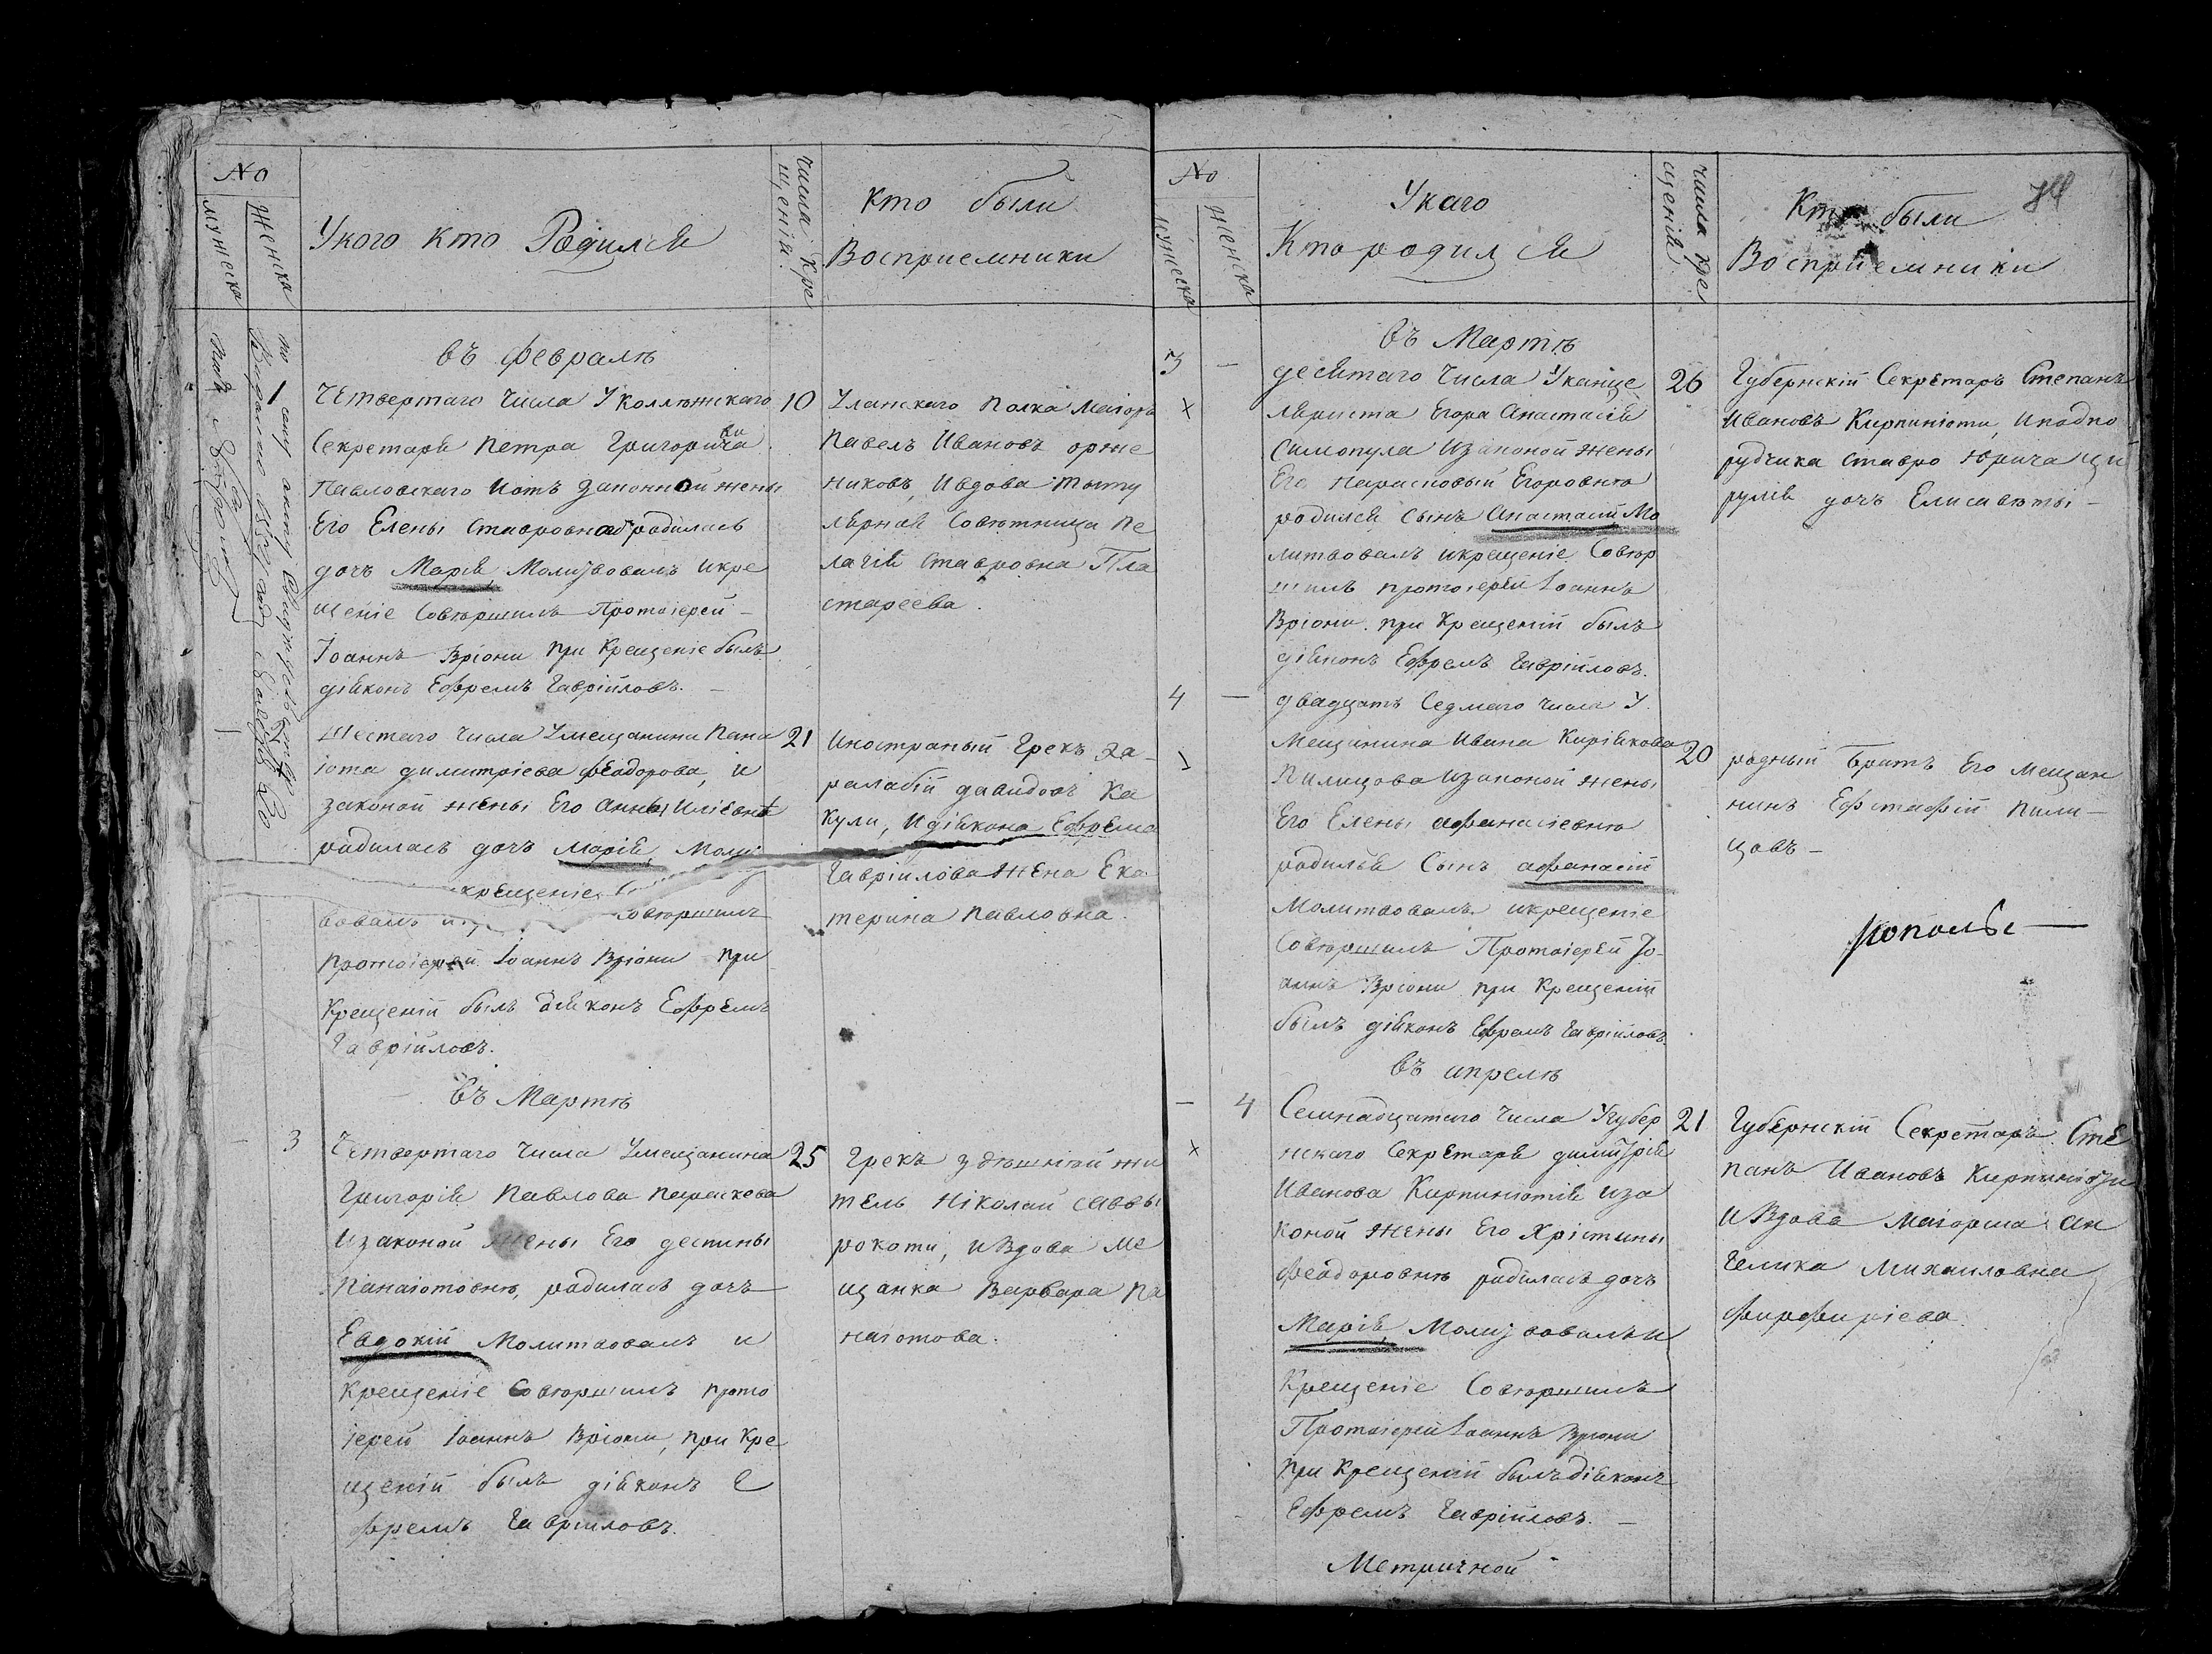 №
мужеска
женска
У кого кто Родился
числа кре
щеній.
Кто были
Восприемники
въ Февралѣ
1
Четвертаго числа У Коллежскаго
Секретаря Петра Григорича
Павловскаго Иотъ законной жены
Его Елены Ставровна родилась
дочь Марія, Молитвовалъ икре
щеніе Совершилъ Протоіерей –
Іоаннъ Вріони При Крещеніе былъ
діяконъ Ефремъ Гавріиловъ. –
10
Уланскаго Полка Маіоръ
Павелъ Ивановъ орже
никовъ, Ивдова Титу
лярная Совѣтница Пе
лагія Ставровна Пла
стареева.
Шестаго числа Умещанина Пана
іота димитріева Феодорова, и
законой жены Его Анны Иліевнѣ
родилась дочь Марія, Моли
крещеніе
вовалъ и совершилъ
протоіерей Іоаннъ Вріони При
Крещеній былъ діяконъ Ефремъ
Гавріиловъ.
21
Иностраный Грекъ Ха
ралабій давидовъ Ка
кули, Идіякона Ефрема
Гавріилова жена Ека
терина Павловна.
въ Мартѣ
3
Четвертаго числа Умещанина
Григорія Павлова Параскева
Изаконой жены Его деспины
Панаіотовнѣ, родилась дочь
Евдокій Молитвовалъ и
Крещеніе Совершилъ прото
іерей Іоаннъ Вріони, при Кре
щеній былъ діяконъ Е
фремъ Гавріиловъ.
25
Грекъ здѣшній жи
тель Ніколай Саввы
рокоти, ивдова Ме
щанка Варвара Па
наіотова.
№
мужеска
женска
Укаго
Кто родился
числа кре
щеній
Кто были
Восприемники
въ Мартѣ
3 –
десятаго числа Уканце
ляриста Егора Анастасія
Симопула Изаконой жены
Его Парасковьи Егоровнѣ
родился сынъ Анастасій, Мо
литвовалъ икрещеніе Совер
шилъ протоіерей Іоаннъ
Вріони. при Крещеній былъ
діяконъ Ефремъ Гавріиловъ.
26
Губернскій Секретарь Степанъ
Ивановъ Карпиніоти, Иподпо
рудчика Ставро Юрича Ци
рулія дочь Елисаветы –
4 –
двадцать Седмаго числа У
Мещанина Ивана Кирiякова
Пилицова Изаконой жены
Его Елены Афанасіевнѣ
родился Сынъ Афанасій
Молитвовалъ икрещеніе
Совершилъ Протоіерей Іо
аннъ Вріони при Крещеній
былъ діяконъ Ефремъ Гавріиловъ.
20
родный Братъ Его мещан
нинъ Ефстафій Пили –
цовъ –
въ Апрелѣ
– 4
Семнадцатаго числа Угубер
нскаго Секретаря димитрія
Иванова Карпиніотія иза
коной жены Его Хрістины
Феодоровнѣ родилась дочь
Марія, Молитвовалъ и
Крещеніе Совершилъ
Протоіерей Іоаннъ Вріони
при Крещеній былъ діяконъ
Ефремъ Гавріиловъ. –
21
Губернскій Секретарь Сте
панъ Ивановъ Карпиніоти
И Вдова маіорша Ан
гелика Михаиловна
Фирфиріева.
Метричной